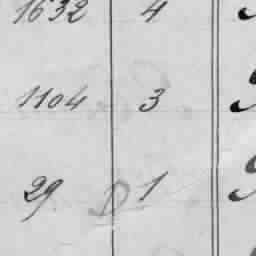 1632 4
1104 3
29. D 1